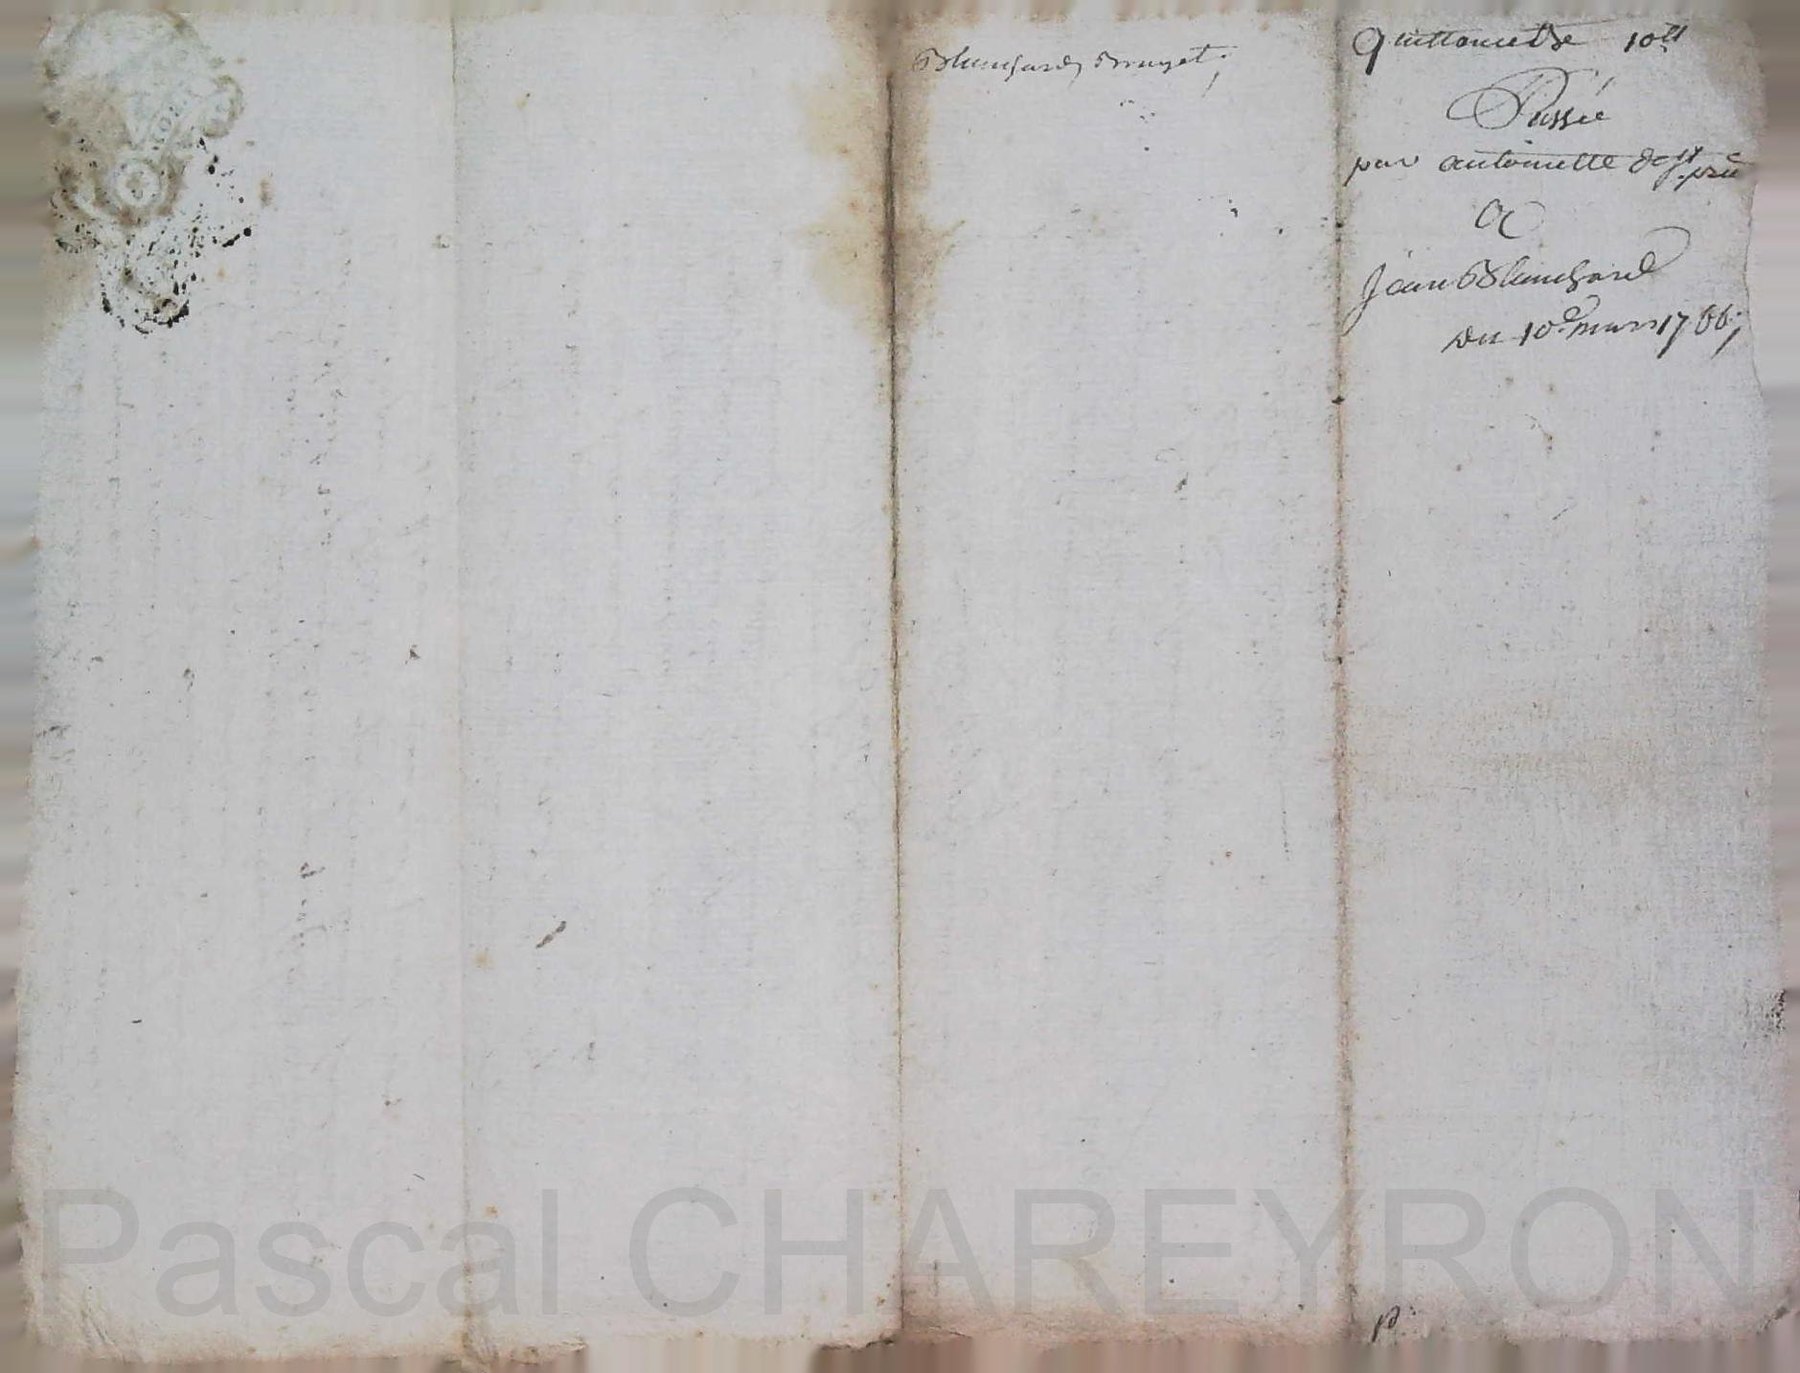 Blanchard, Bruyet;
quittance de 10ˡᵗ
Passée
par antoinette de Sᵗ prie
A
Jean Blanchard
du 10ᵉ mars 1766;
Pascal CHAREYRON